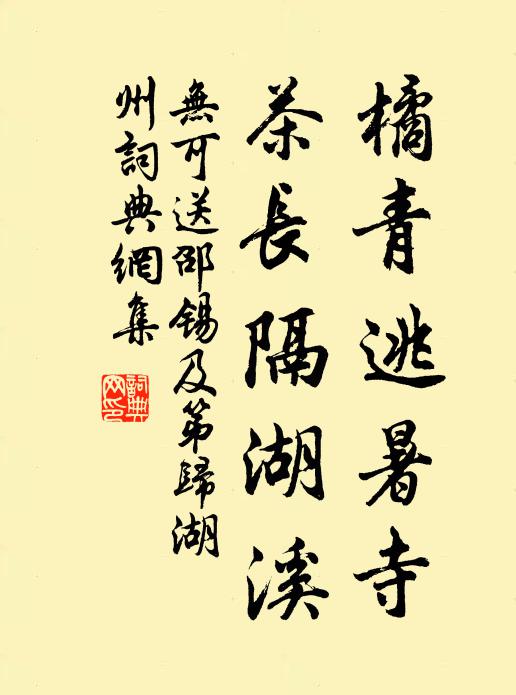 橘青逃暑寺
茶長隔湖溪
無可送邵錫及第歸湖
州詞典網集
詞典
网印